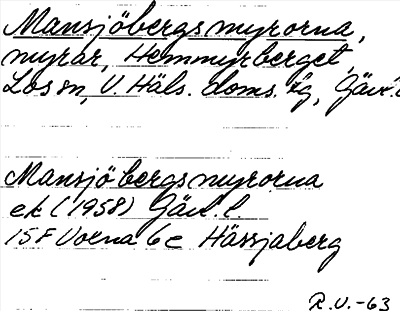 Mansjöbergsmyrorna,
myrar, Hemmyrberget,
Los sn, V. Häls. doms. tg, Gäv.
Mansjöbergsmyrorna
ek (1958) Gäv. l.
15F Voxna 6c Hässjaberg
R.V.-63